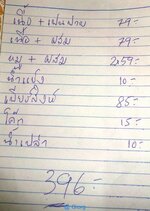 เนื้อ + เฟรนฟราย 79.-
เนื้อ + ผสม 79.-
หมู + ผสม 2x59.-
น้ำแข็ง 10.-
เบียร์สิงห์ 85.-
โค้ก 15.-
น้ำเปล่า 10.-
396.-